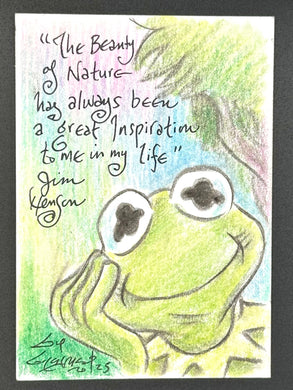 "The Beauty
of Nature
has always been
a great Inspiration
to me in my life"
Jim
Henson
2025